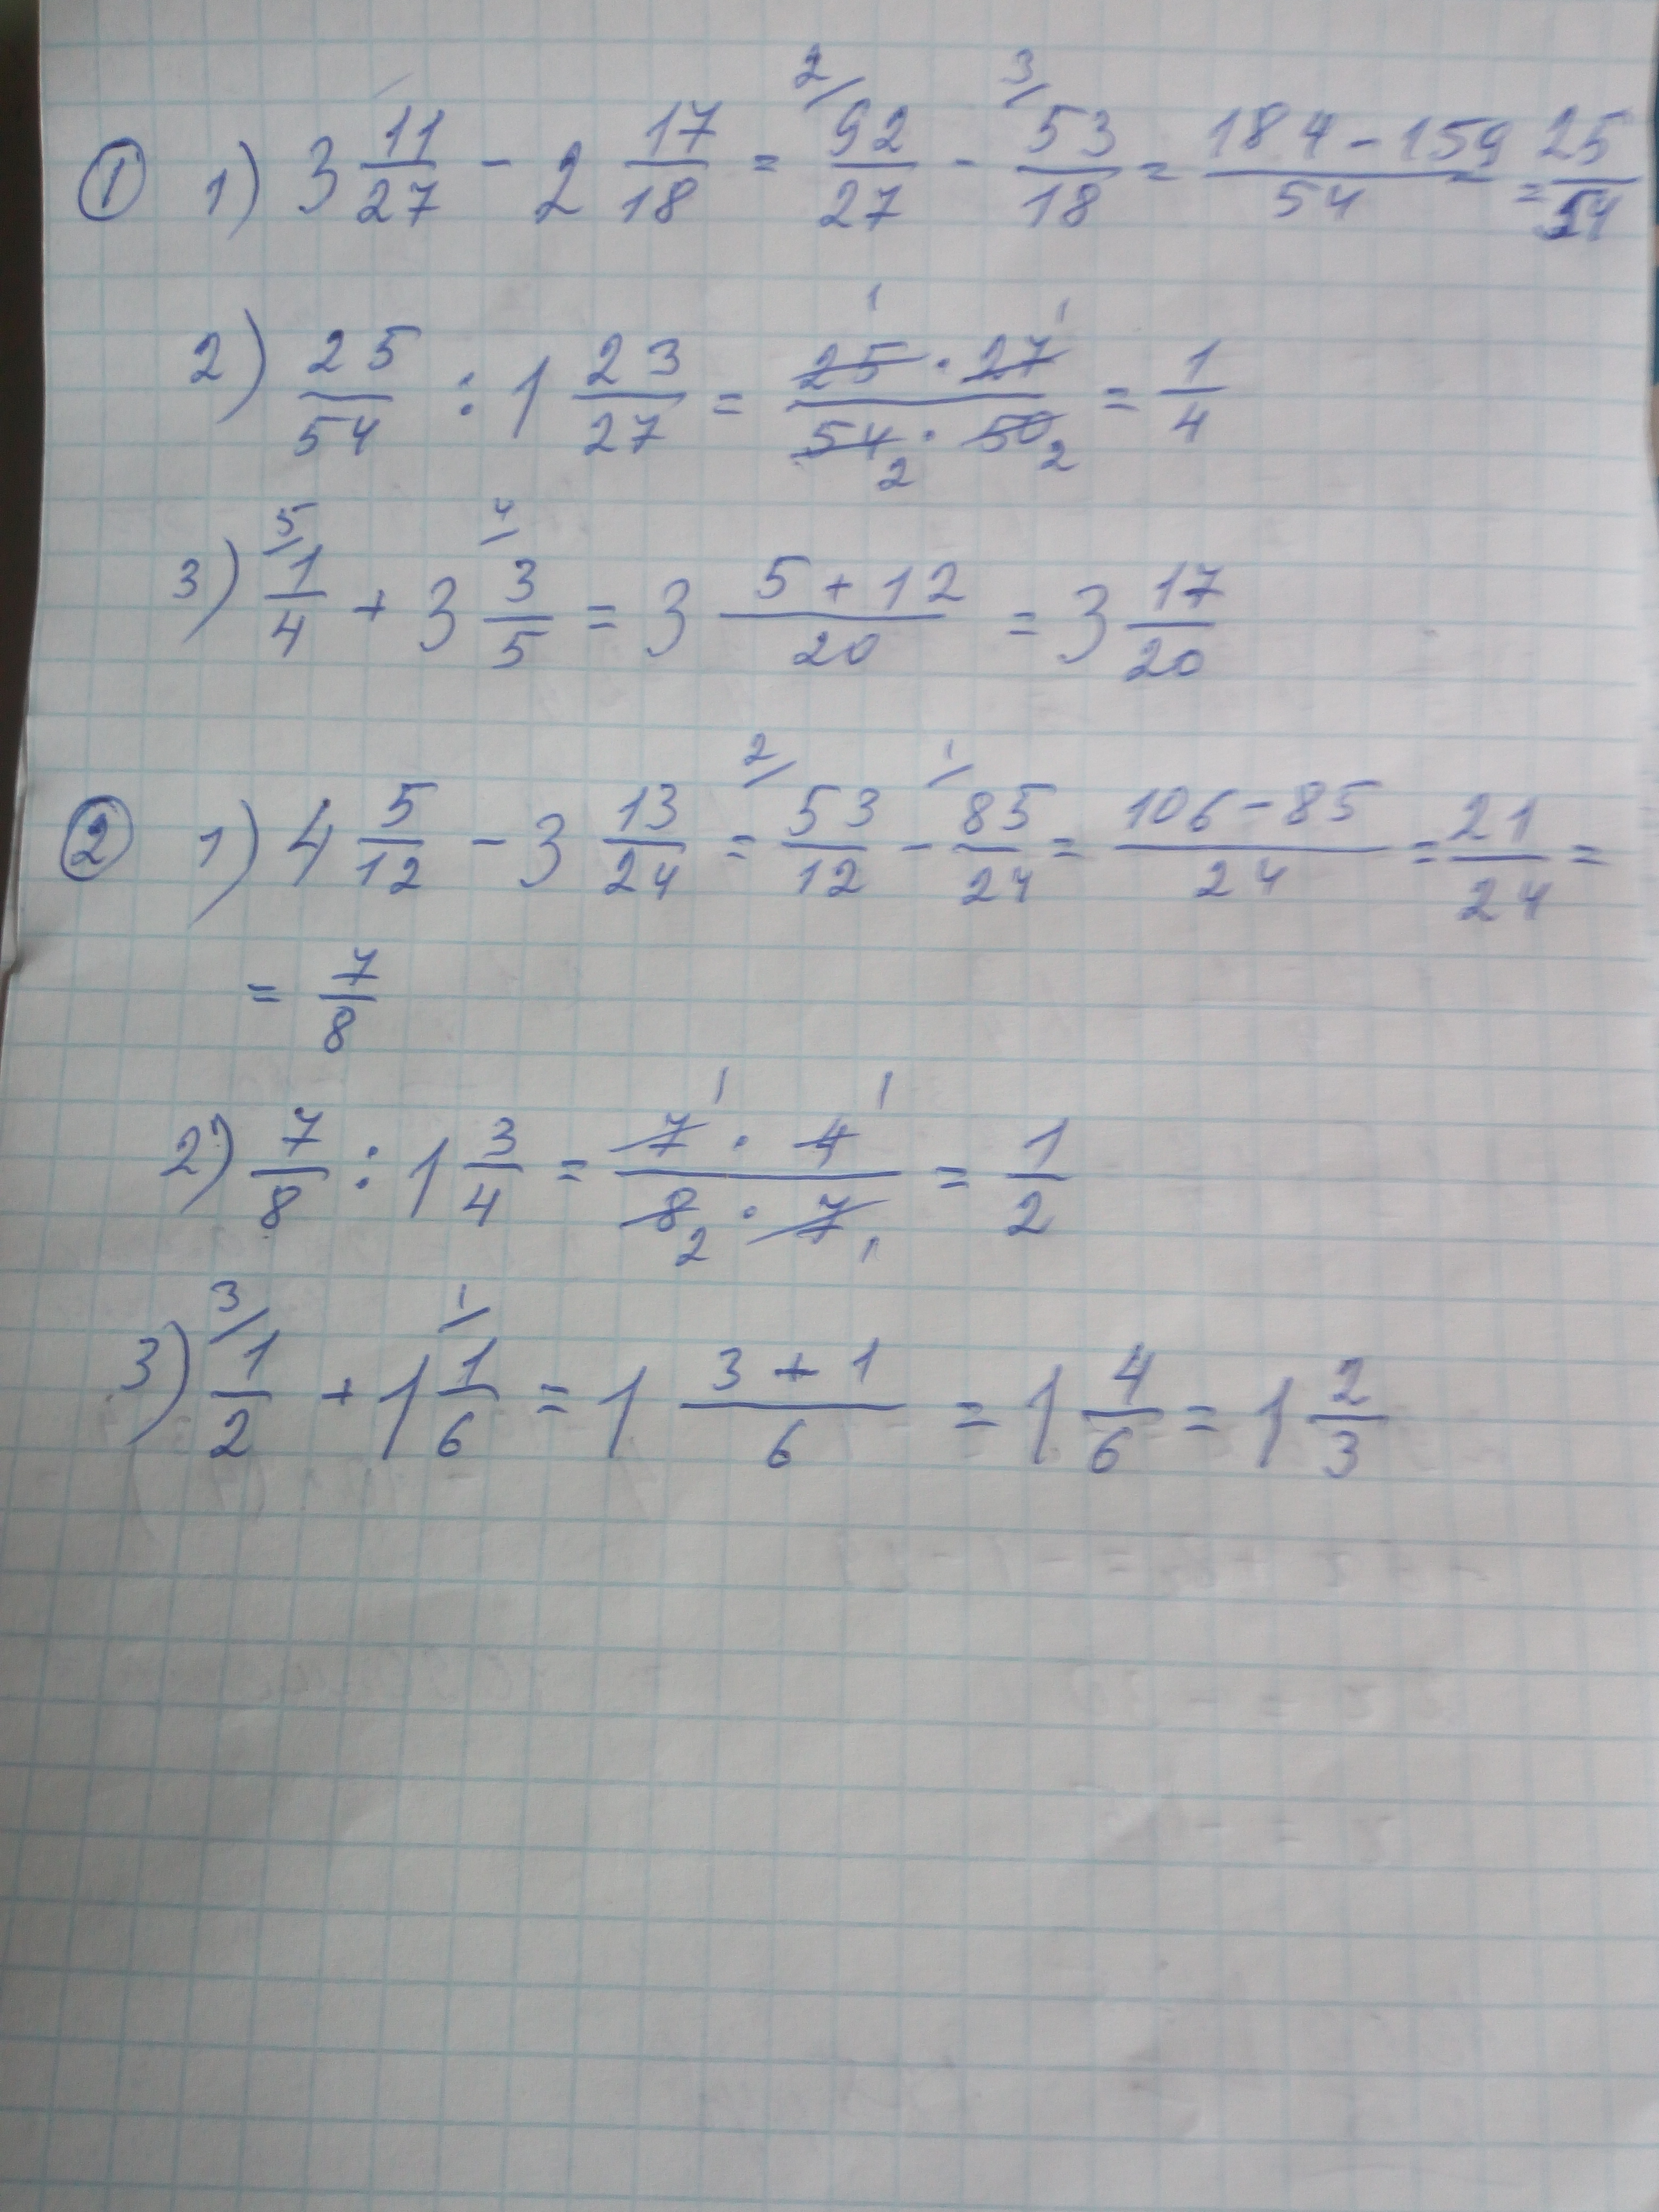 ① 1) 3 11/27 - 2 17/18 = 2/ 92/27 - 3/ 53/18 = (184-159)/54 = 25/54
2) 25/54 : 1 23/27 = (25 · 27)/(54 · 50) 1 1 2 2 = 1/4
3) 5/ 1/4 + 3 4/ 3/5 = 3 (5+12)/20 = 3 17/20
② 1) 4 5/12 - 3 13/24 = 2/ 53/12 - 1/ 85/24 = (106-85)/24 = 21/24 =
= 7/8
2) 7/8 : 1 3/4 = (7 · 4)/(8 · 7) 1 1 2 1 = 1/2
3) 3/ 1/2 + 1 1/ 1/6 = 1 (3+1)/6 = 1 4/6 = 1 2/3